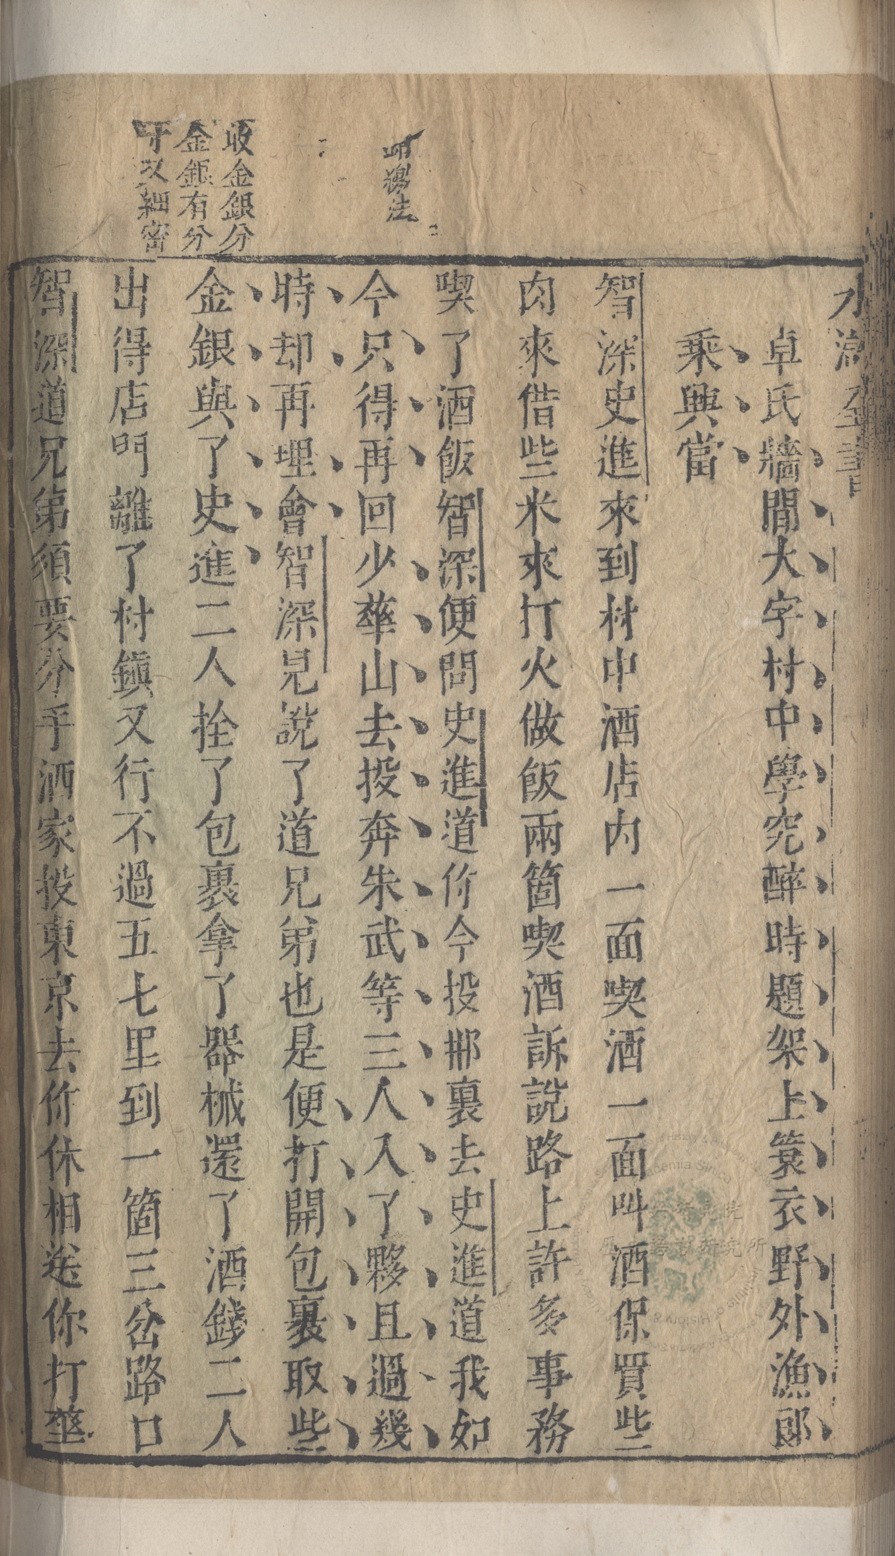 水滸全書
卓氏牆間大字村中學究醉時題架上簑衣野外漁郎
乘興當
智深史進來到村中酒店內一面喫酒一面叫酒保買些
肉來借些米來打火做飯兩箇喫酒訴說路上許多事務
喫了酒飯智深便問史進道你今投那裏去史進道我如
今只得再回少華山去投奔朱武等三人入了夥且過幾
時却再理會智深見說了道兄弟也是便打開包裹取些
金銀與了史進二人拴了包裹拿了器械還了酒錢二人
出得店門離了村鎮又行不過五七里到一箇三岔路口
智深道兄弟須要分手洒家投東京去你休相送你打華
收金銀分
金銀有分
寸又細密